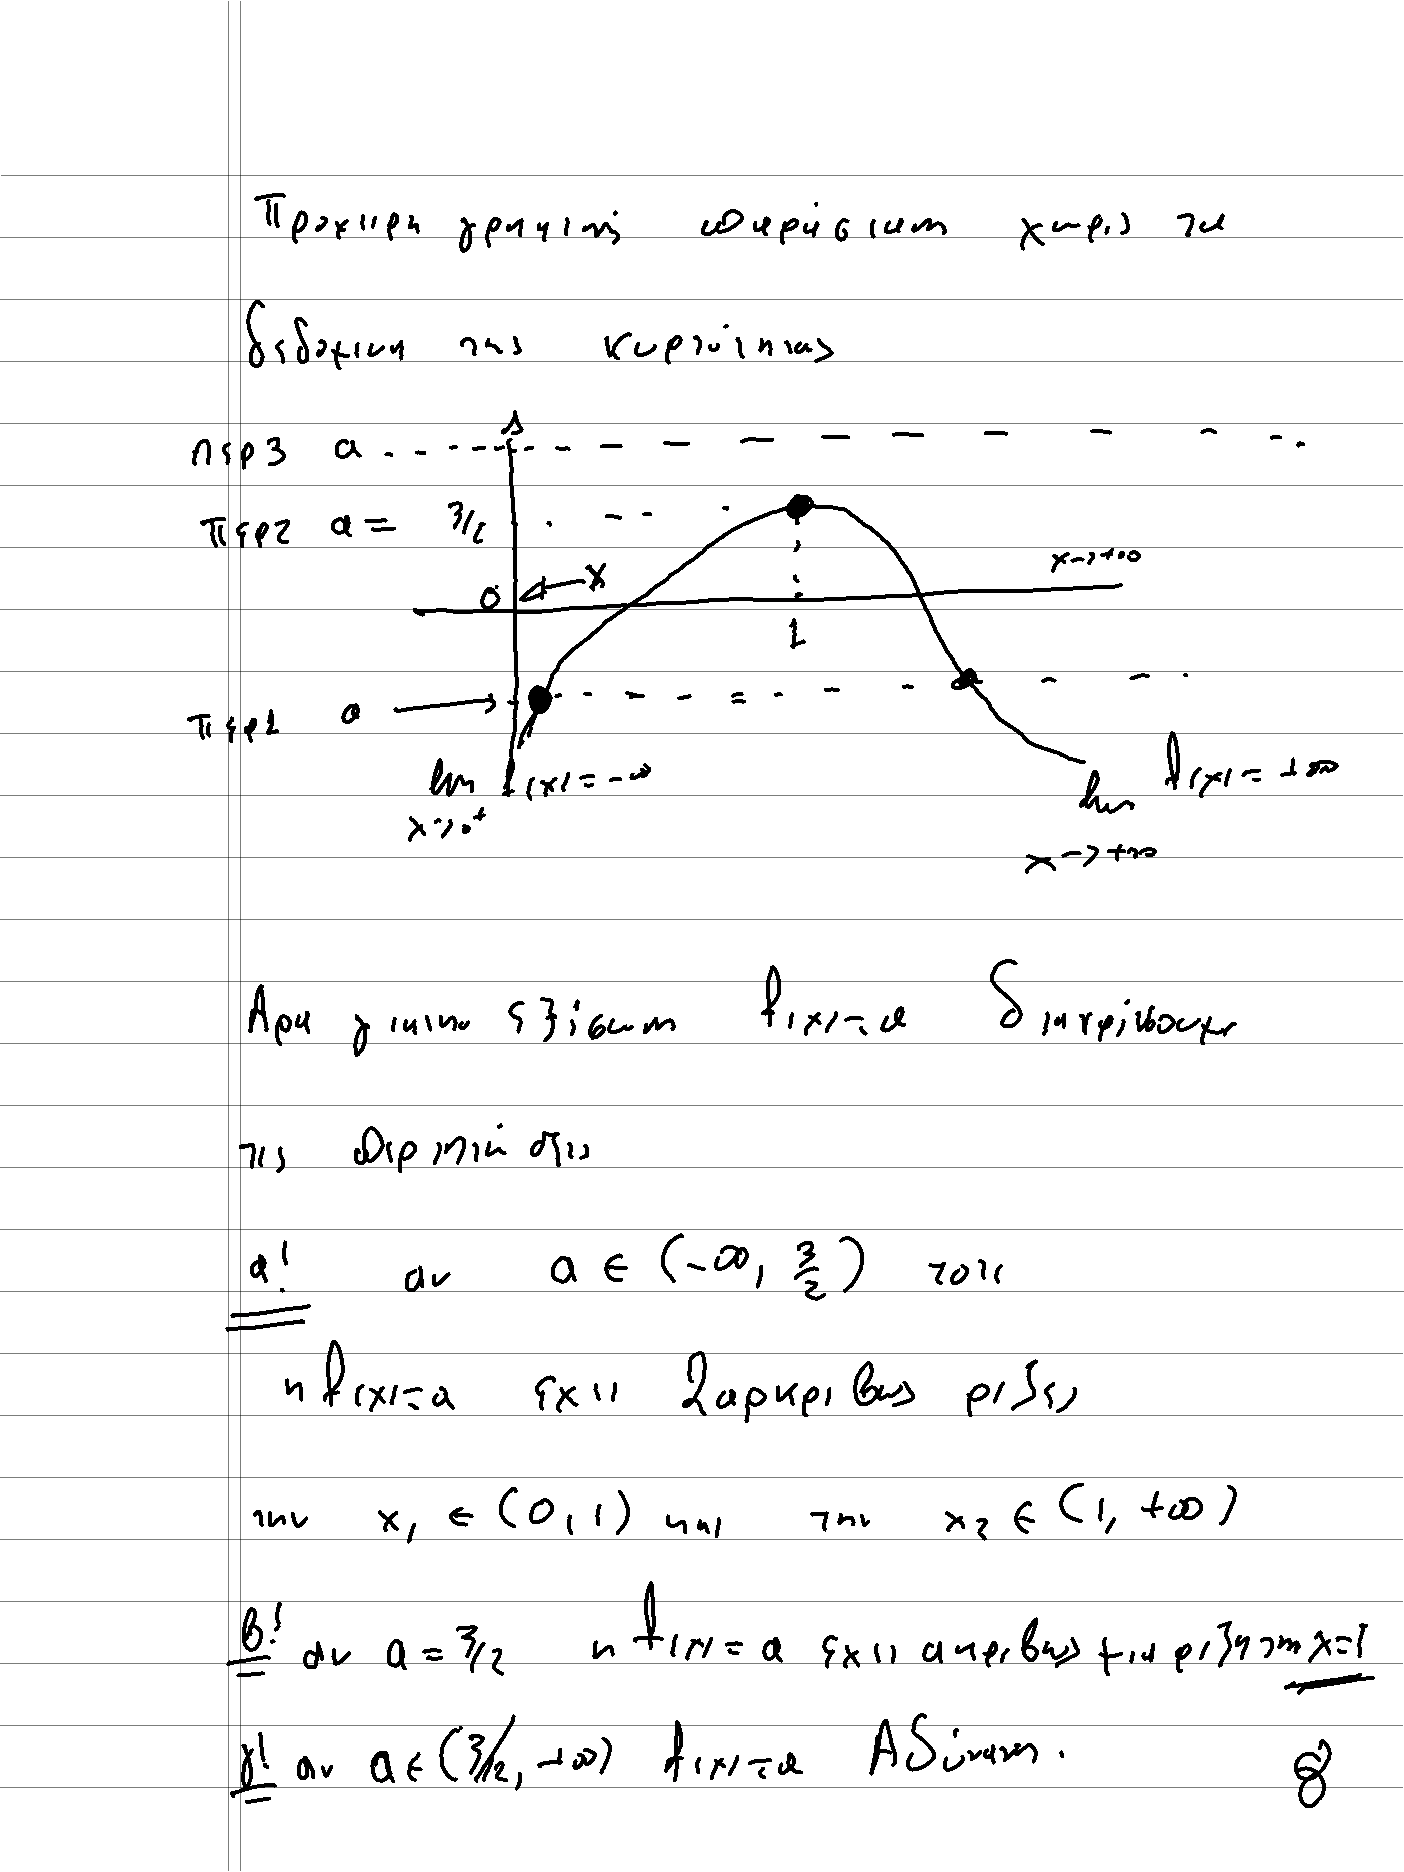 Πρόχειρη γραφική παράσταση χωρίς τα
δεδομένα της κυρτότητας
περ3 a
περ2 a = 3/2
0 x x→+∞
1
περ1 a
lim f(x) = -∞
x→0+
lim f(x) = +∞
x→+∞
Αρα για την εξίσωση f(x)=a διακρίνουμε
τις περιπτώσεις
α! αν a ∈ (-∞, 3/2) τότε
η f(x)=a έχει 2 ακριβώς ρίζες
την x₁ ∈ (0,1) και την x₂ ∈ (1, +∞)
β! αν a = 3/2 η f(x) = a έχει ακριβώς μια ρίζα τη x=1
γ! αν a ∈ (3/2, +∞) f(x)=a Αδύνατη.
8